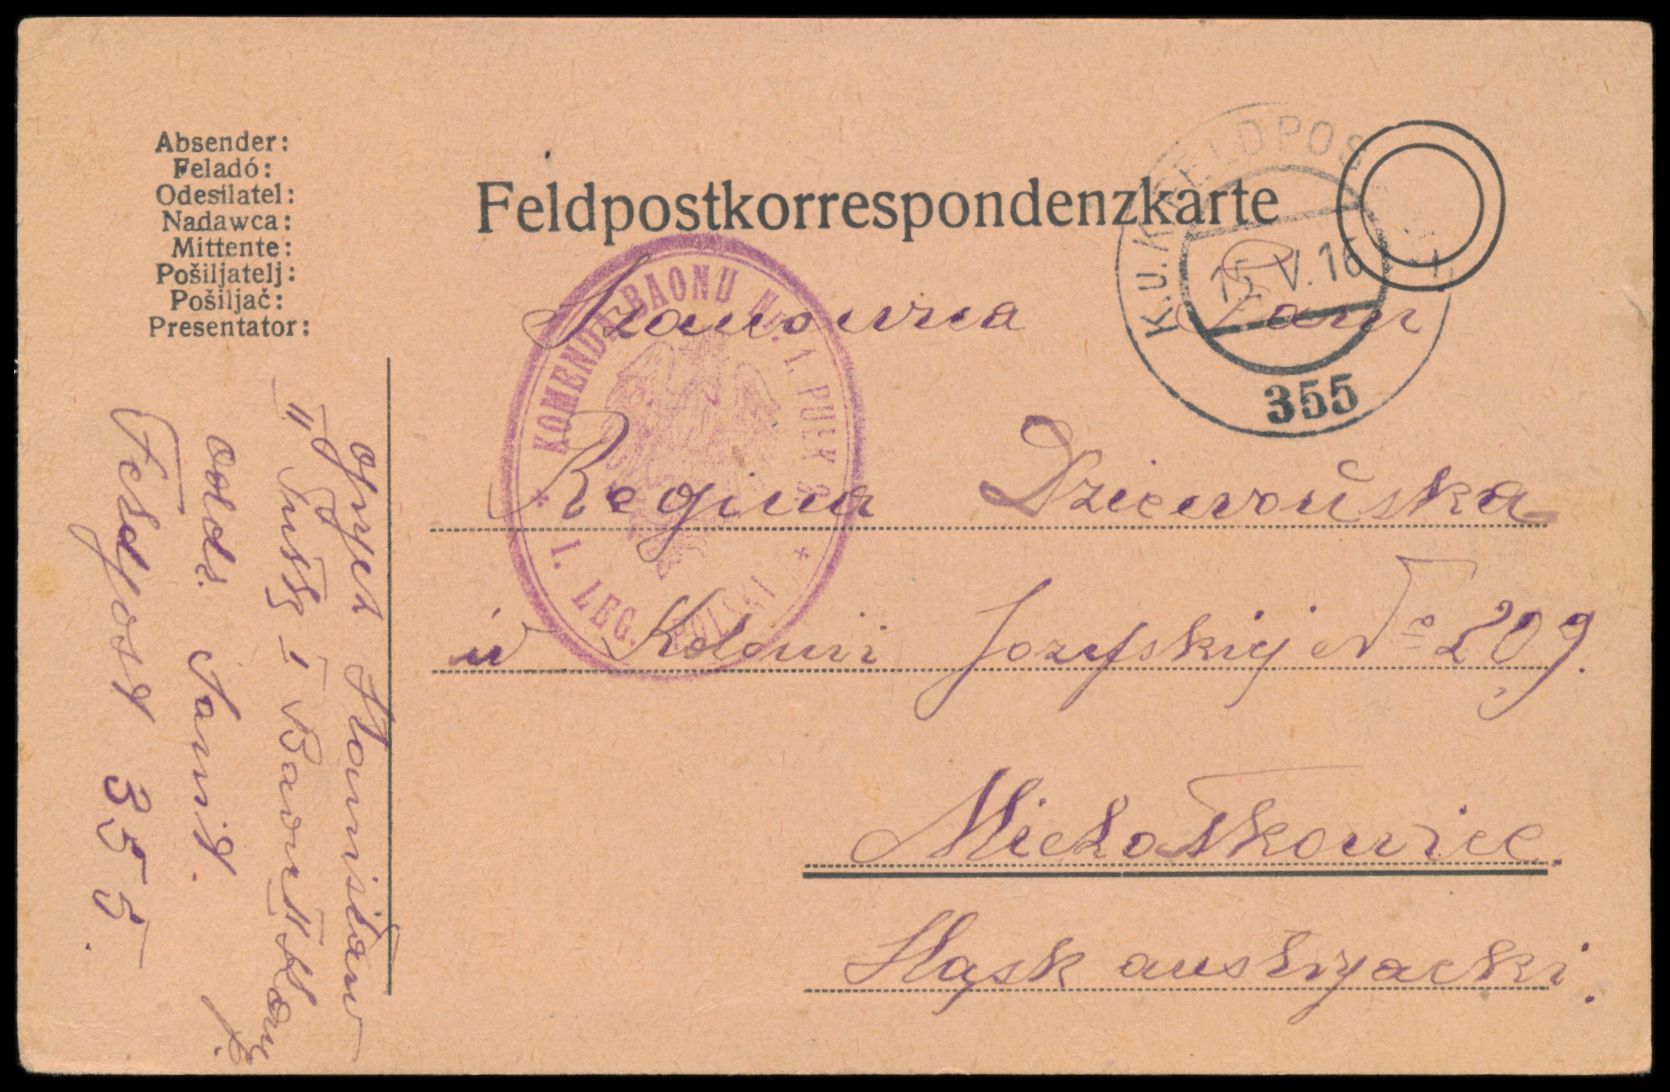 Absender:
Feladó:
Odesílatel:
Nadawca:
Mittente:
Pošiljatelj:
Pošiljač:
Presentator:
Feldpostkorrespondenzkarte
K.u.K. FELDPOS
15.V.16
355
KOMENDA BAONU N. 1. PUŁK
1. LEG. POLSKI
Szanowna Pani
Regina Dziewońska
w Kolonii Jozefskij No 209.
Michałkowice.
Śląsk austryacki.
Stanisław
I Baon
odds. Sanit.
Feldpost 355.